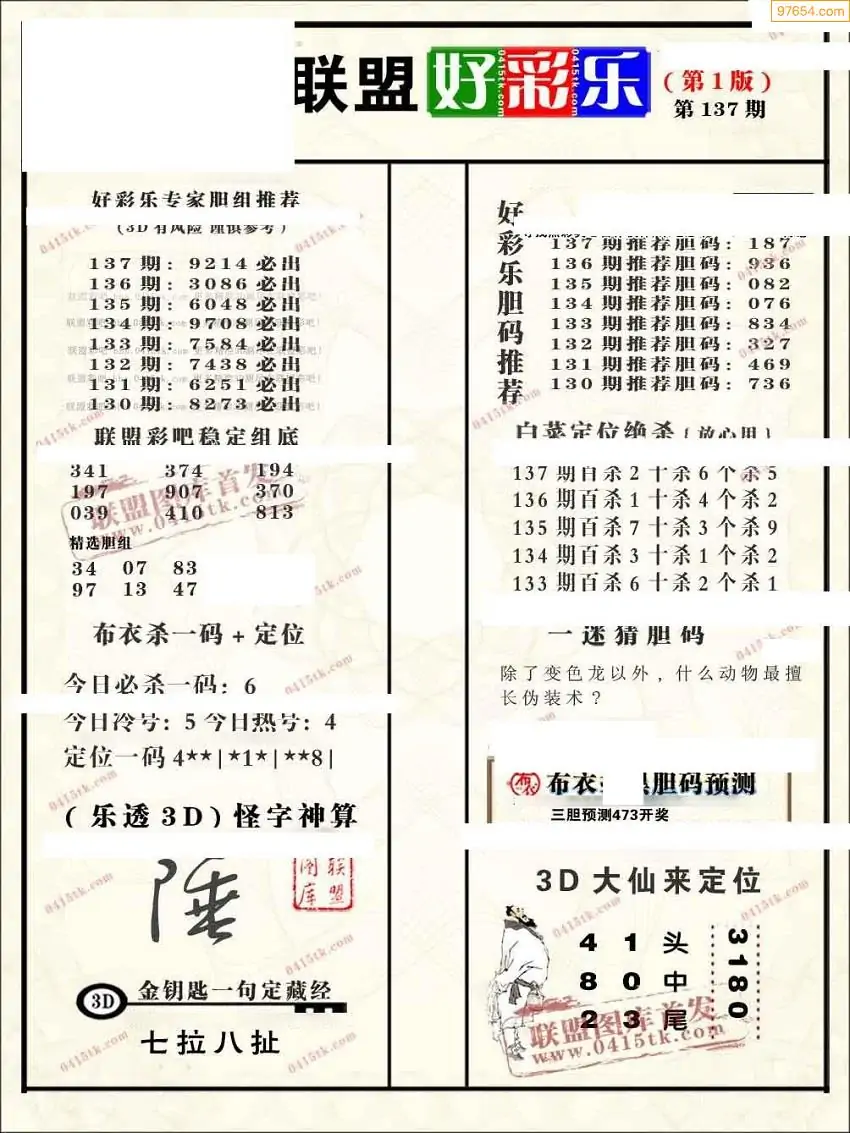 97654.com
联盟 好彩乐
(第1版)
第137期
好彩乐专家胆组推荐
(3D有风险 谨慎参考)
137期：9214必出
136期：3086必出
135期：6048必出
134期：9708必出
133期：7584必出
132期：7438必出
131期：6251必出
130期：8273必出
联盟彩吧稳定组底
341 374 194
197 907 370
039 410 813
精选胆组
34 07 83
97 13 47
布衣杀一码+定位
今日必杀一码：6
今日冷号：5 今日热号：4
定位一码4**|*1*|**8|
(乐透3D)怪字神算
联盟图库
3D 金钥匙一句定藏经
七拉八扯
好彩乐胆码推荐
137期推荐胆码：187
136期推荐胆码：936
135期推荐胆码：082
134期推荐胆码：076
133期推荐胆码：834
132期推荐胆码：327
131期推荐胆码：469
130期推荐胆码：736
白菜定位绝杀{放心用}
137期百杀2十杀6个杀5
136期百杀1十杀4个杀2
135期百杀7十杀3个杀9
134期百杀3十杀1个杀2
133期百杀6十杀2个杀1
一迷猜胆码
除了变色龙以外，什么动物最擅
长伪装术？
布衣 胆码预测
三胆预测473开奖
3D大仙来定位
4 1 头
8 0 中
2 3 尾
3180
联盟图库首发
www.0415tk.com
联盟图库首发
www.0415tk.com
0415tk.com